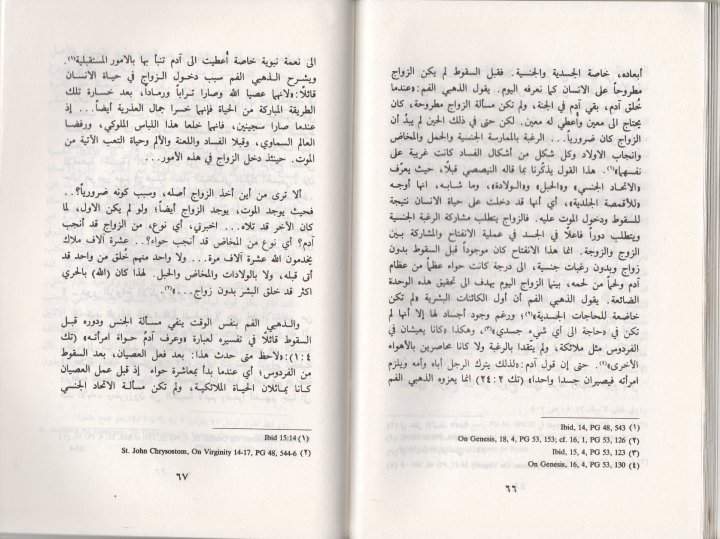 أبعاده، خاصة الجسدية والجنسية. فقبل السقوط لم يكن الزواج
مطروحاً على الانسان كما نعرفه اليوم. يقول الذهبي الفم: «عندما
خُلق آدم، بقي آدم في الجنة، ولم تكن مسألة الزواج مطروحة، كان
يحتاج الى معين وأُعطي له معين. لكن حتى في ذلك الحين لم يبدُ أن
الزواج كان ضرورياً... الرغبة بالممارسة الجنسية والحمل والمخاض
وانجاب الاولاد وكل شكل من أشكال الفساد كانت غريبة على
نفسيهما»(١). هذا القول يذكّرنا بما قاله النيصصي قبلاً، حيث يعرّف
«الاتحاد الجنسي» و«الحبل» و«الولادة»، وما شابه، انها أوجه
«للأقمصة الجلدية»، أي أنها قد دخلت على حياة الانسان نتيجة
للسقوط ودخول الموت عليه. فالزواج يتطلب مشاركة الرغبة الجنسية
ويتطلب دوراً فاعلًا في الجسد في عملية الانفتاح والمشاركة بين
الزوج والزوجة. انما هذا الانفتاح كان موجوداً قبل السقوط بدون
زواج وبدون رغبات جنسية، الى درجة كانت حواء عظماً من عظام
آدم ولحماً من لحمه، بينما الزواج اليوم يهدف الى تحقيق هذه الوحدة
الضائعة. يقول الذهبي الفم أن أول الكائنات البشرية «لم تكن
خاضعة للحاجات الجسدية»(٢) ورغم وجود أجساد لها إلا أنها لم
تكن في «حاجة الى أي شيء جسدي»(٣)، وهكذا «كانا يعيشان في
الفردوس مثل ملائكة، ولم يتقدا بالرغبة ولا كانا محاصرين بالأهواء
الأخرى»(٤). حتى إن قول آدم: «لذلك يترك الرجل أباه وأمه ويلزم
امرأته فيصيران جسدا واحدا» (تك ٢: ٢٤) انما يعزوه الذهبي الفم
(١) Ibid, 14, PG 48, 543
(٢) On Genesis, 18, 4, PG 53, 153; cf. 16, 1, PG 53, 126
(٣) Ibid, 15, 4, PG 53, 123
(٤) On Genesis, 16, 4, PG 53, 130
٦٦
الى نعمة نبوية خاصة أُعطيت الى آدم تنبأ بها بالامور المستقبلية(١).
ويشرح الذهبي الفم سبب دخول الزواج في حياة الانسان
قائلًا: «لانهما عصيا الله وصارا تراباً ورماداً، بعد خسارة تلك
الطريقة المباركة من الحياة فإنهما خسرا جمال العذرية أيضاً... إذ
عندما صارا سجينين، فانهما خلعا هذا اللباس الملوكي، ورفضا
العالم السماوي، وقبلا الفساد واللعنة والألم وحياة التعب الآتية من
الموت. حينئذ دخل الزواج في هذه الأمور...
ألا ترى من أين أخذ الزواج أصله، وسبب كونه ضرورياً؟..
فحيث يوجد الموت، يوجد الزواج أيضاً؛ ولو لم يكن الاول، لما
كان الآخر قد تلاه... اخبرني، أي نوع، من الزواج قد أنجب
آدم؟ أي نوع من المخاض قد أنجب حواء؟.. عشرة آلاف ملاك
يخدمون الله عشرة آلاف مرة... ولا واحد منهم خُلق من واحد قد
أتى قبله، ولا بالولادات والمخاض والحبل. لهذا كان (الله) بالحري
اكثر قد خلق البشر بدون زواج...»(٢).
والذهبي الفم بنفس الوقت ينفي مسألة الجنس ودوره قبل
السقوط قائلًا في تفسيره لعبارة «وعرف آدمُ حواءَ امرأته» (تك
٤: ١): «لاحظ متى حدث هذا: بعد فعل العصيان، بعد السقوط
من الفردوس؛ أي عندما بدأ بمعاشرة حواء إذ قبل عمل العصيان
كانا يماثلان الحياة الملائكية، ولم تكن مسألة الاتحاد الجنسي
(١) Ibid 15:14
(٢) St. John Chrysostom, On Virginity 14-17, PG 48, 544-6
٦٧